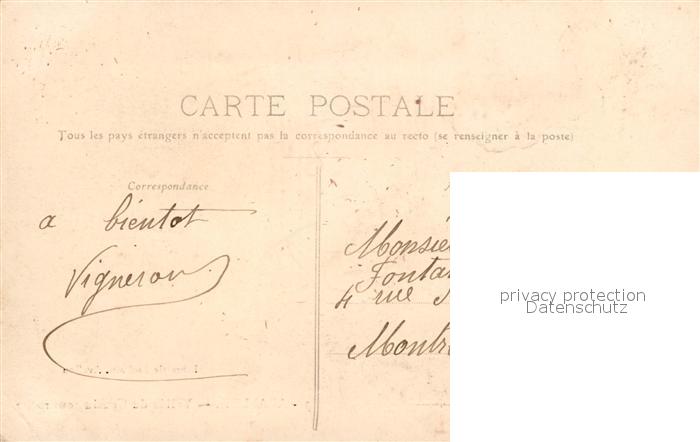 CARTE POSTALE
Tous les pays étrangers n'acceptent pas la correspondance au recto (se renseigner à la poste)
Correspondance
a bientot
Vigneron
Monsie
Fontai
4 rue
Montr
privacy protection
Datenschutz